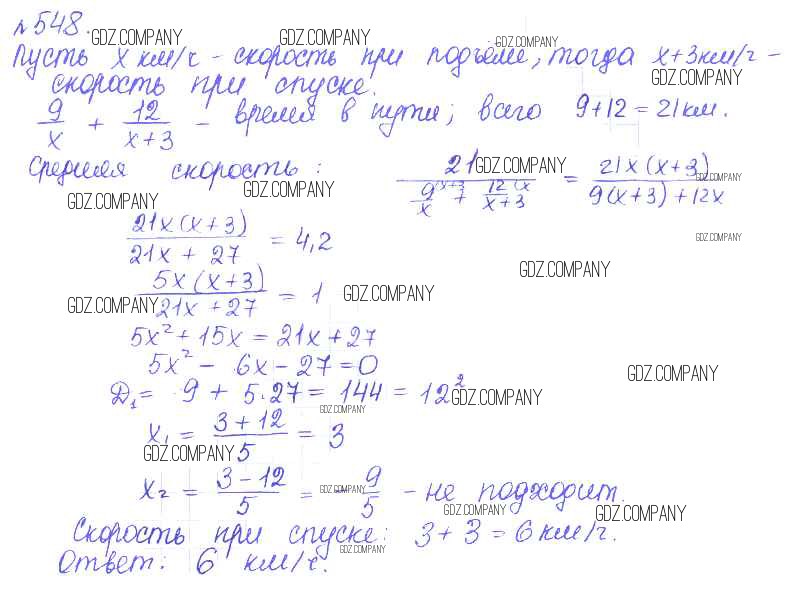 №548. GDZ.COMPANY GDZ.COMPANY GDZ.COMPANY
Пусть x км/ч - скорость при подъеме, тогда x+3км/ч -
GDZ.COMPANY
скорость при спуске.
9/x + 12/(x+3) - время в пути; всего 9+12=21км.
Средняя скорость: 21/(9/x + 12/(x+3)) = 21x(x+3)/(9(x+3)+12x)
GDZ.COMPANY GDZ.COMPANY GDZ.COMPANY GDZ.COMPANY
21x(x+3)/(21x+27) = 4,2
GDZ.COMPANY
GDZ.COMPANY
5x(x+3)/(21x+27) = 1
GDZ.COMPANY GDZ.COMPANY
5x²+15x=21x+27
5x²-6x-27=0
GDZ.COMPANY
Д₁= 9+5·27=144=12²
GDZ.COMPANY
GDZ.COMPANY
x₁ = (3+12)/5 = 3
GDZ.COMPANY
x₂ = (3-12)/5 = -9/5 - не подходит.
GDZ.COMPANY
GDZ.COMPANY GDZ.COMPANY
Скорость при спуске: 3+3=6км/ч.
GDZ.COMPANY
Ответ: 6 км/ч.